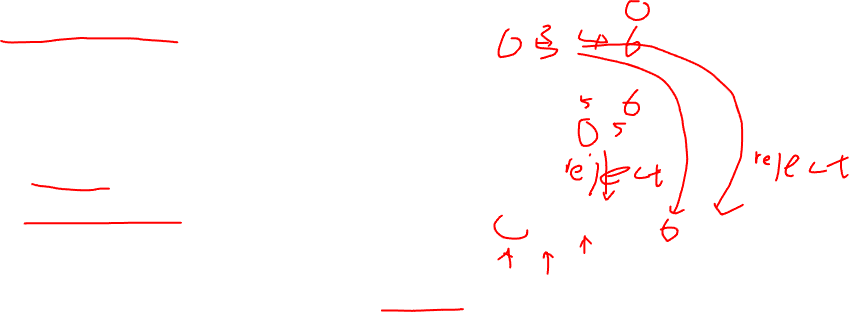 0
0 3 6
5 6
0 5
reject
reject
6